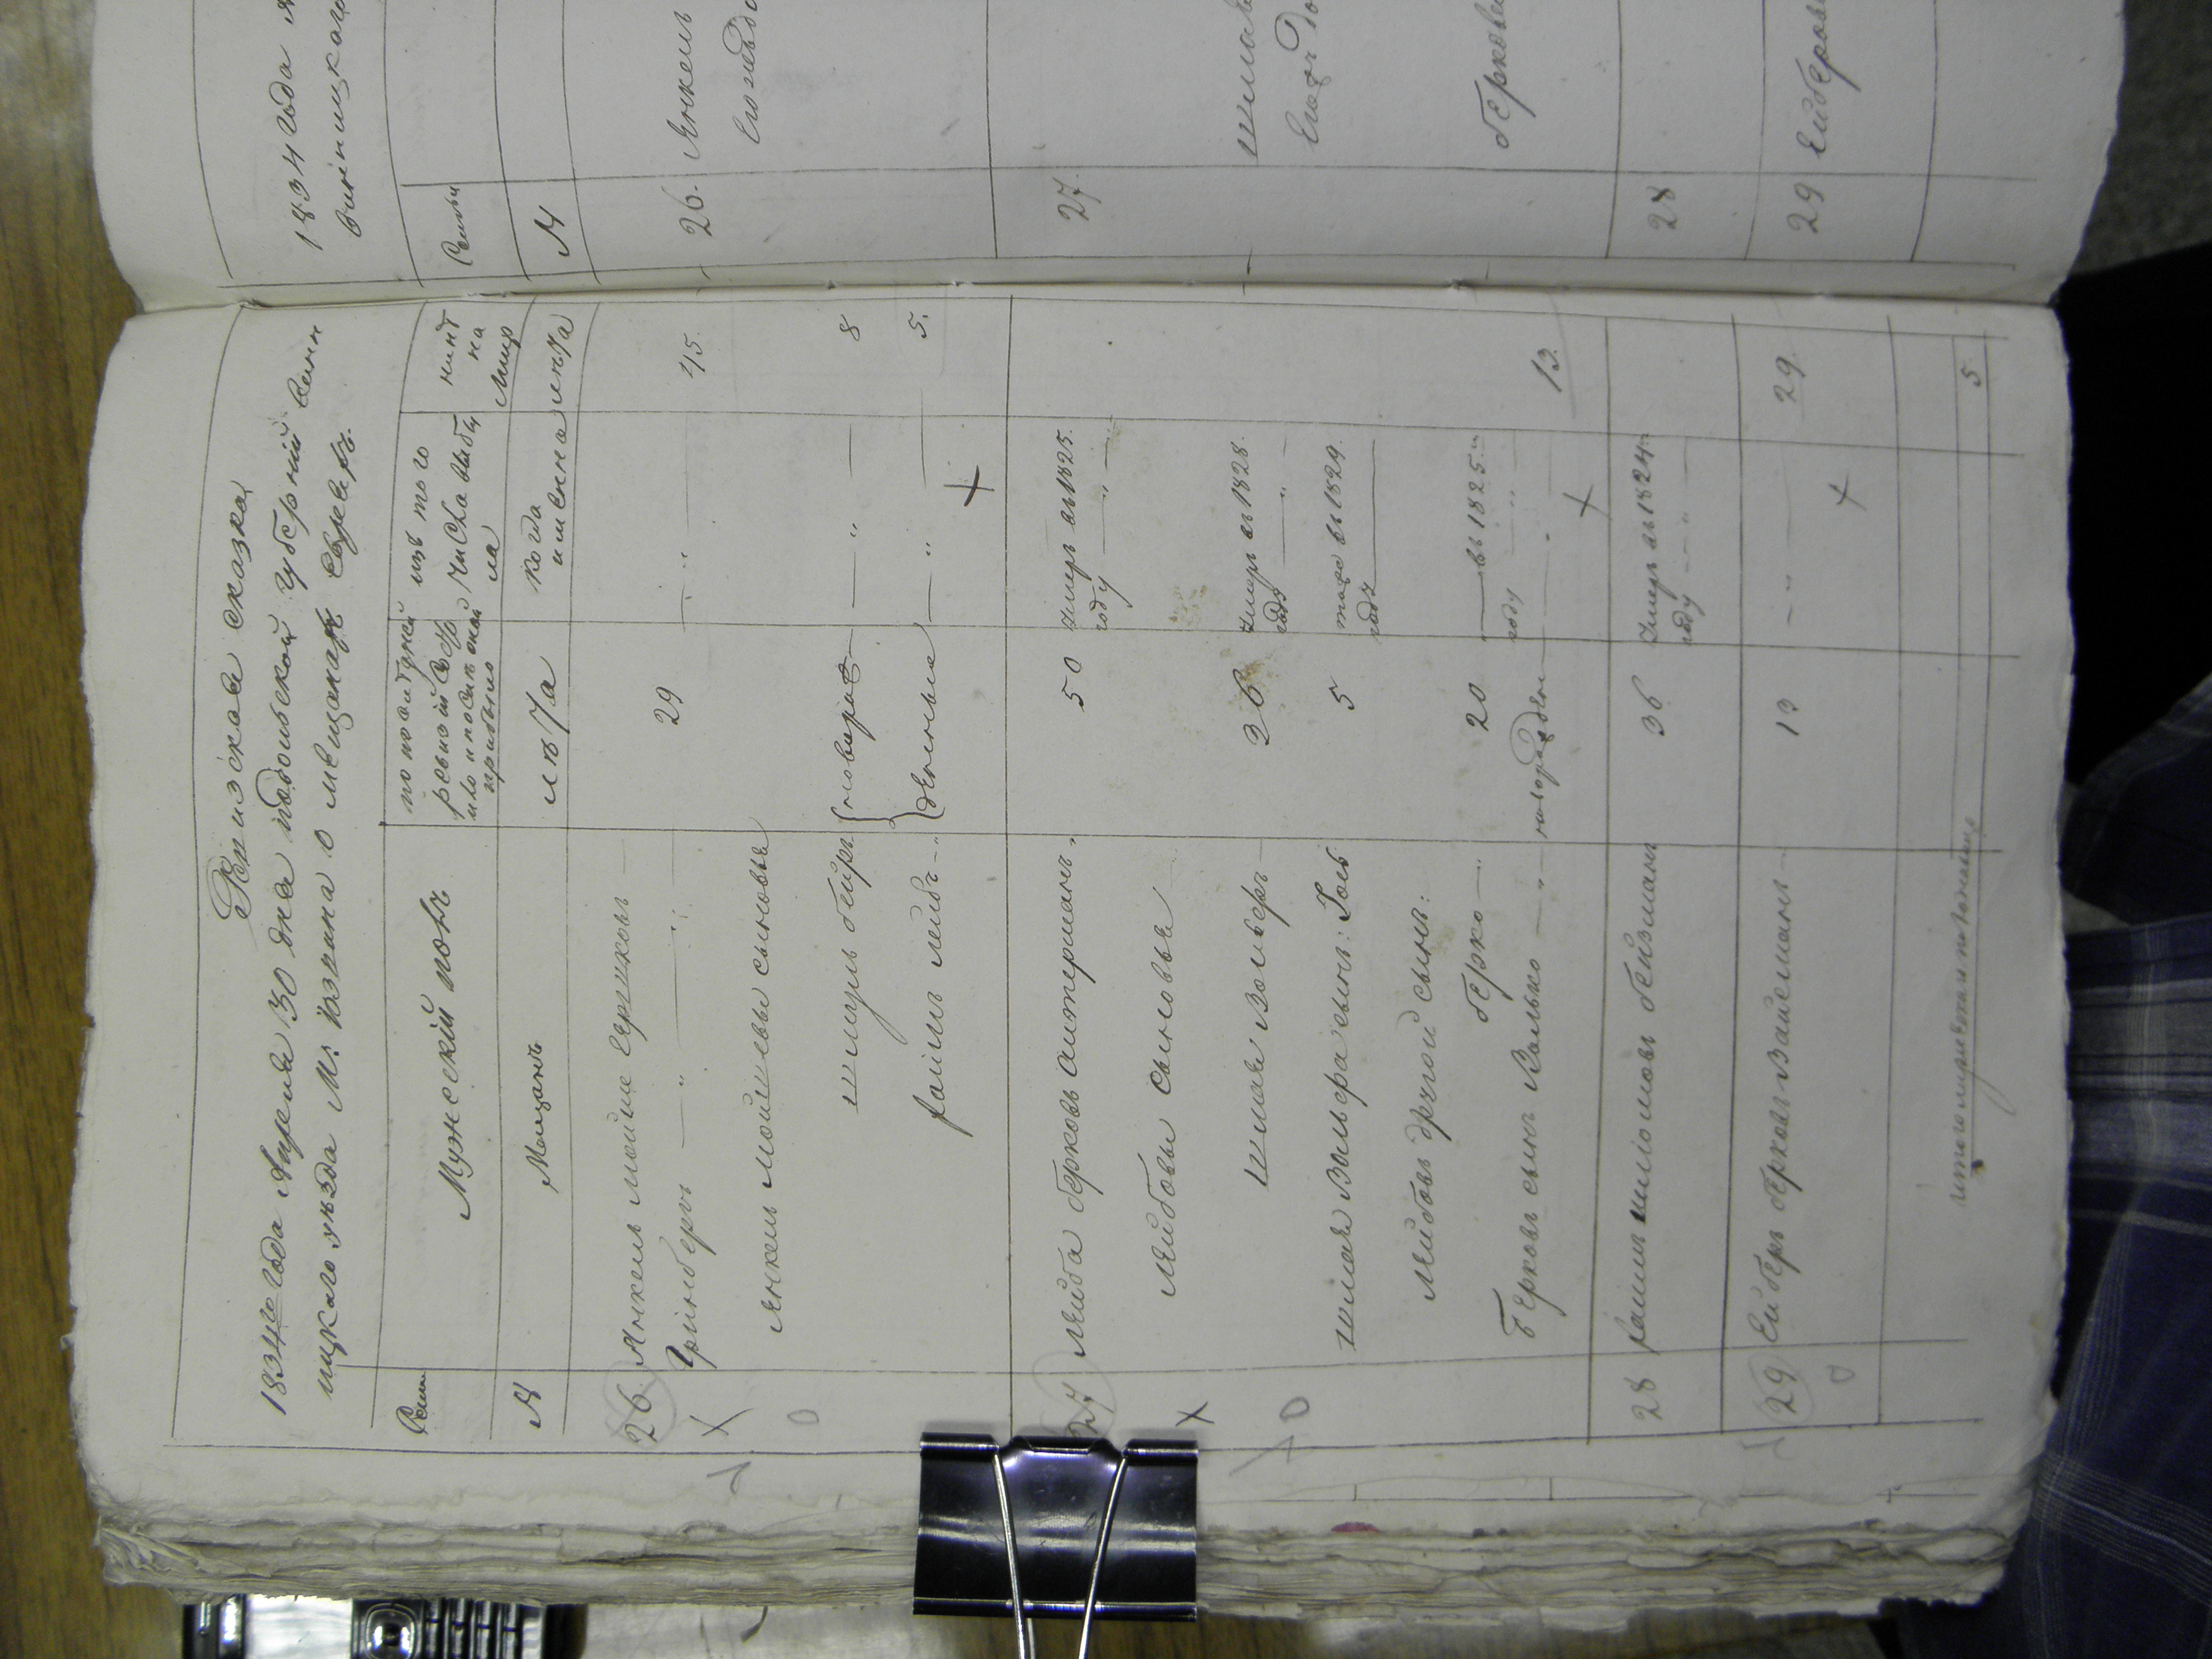 Ревизская сказка
1834го года Апреля 30 дня подольской губерній вини
ицкаго уезда М: о мещанахъ Евреяхъ.
Семи
Мужескій полъ
по последней
ревизій состо
яло и после оной
прибыло
изъ того
числа выбы
ло
ныне
на
лицо
№
Мещанъ
лета
когда
именно
лета
26. Янкель мойше Гершковъ 29 45
Грінберъ
янкель мойшевы сыновья
шмуль бейръ новорож 8
хаимъ лейбъ денные 5.
27 лейба берковъ 50 умеръ въ 1825.
году
лейбовы сыновья
шмая Вольферъ 36 умеръ въ 1828.
году
шмая Вольфера сынъ: 5 тоже въ 1829.
году
лейбовъ другой сынъ:
берко 20 въ 1825
году
Берковъ сынъ Волько новорожден 13.
28 хаимъ шмоловъ бейзманъ 36 умеръ въ 1824
году
29 Ейберъ берковъ Вайсманъ 13 29.
итого мужеска пола на лицо 5
1834 года
винницкаго
Семьи
№
26. Янкель
Его
27.
шмая
Его
берковы
28
29 Ейберовы